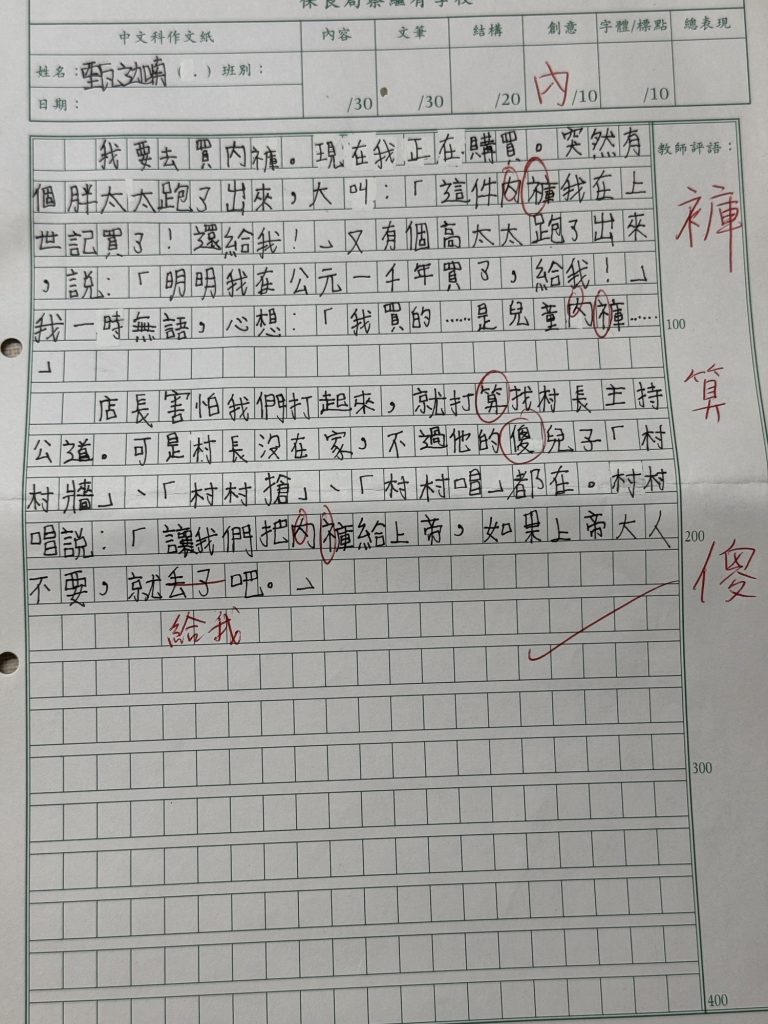 保良局蔡繼有學校
中文科作文紙 內容 文筆 結構 創意 字體/標點 總表現
姓名：甄泑喃（ . ）班別：
日期： /30 /30 /20 內 /10 /10
教師評語：
我要去買內褲。現在我正在購買。突然有
個胖太太跑了出來，大叫：「這件內褲我在上
世記買了！還給我！」又有個高太太跑了出來
，說：「明明我在公元一千年買了，給我！」
我一時無語，心想：「我買的……是兒童內褲……
」
店長害怕我們打起來，就打算找村長主持
公道。可是村長沒在家，不過他的傻兒子「村
村牆」、「村村搶」、「村村唱」都在。村村
唱說：「讓我們把內褲給上帝，如果上帝大人
不要，就丟了吧。」
給我
褲
100
算
200
傻
300
400